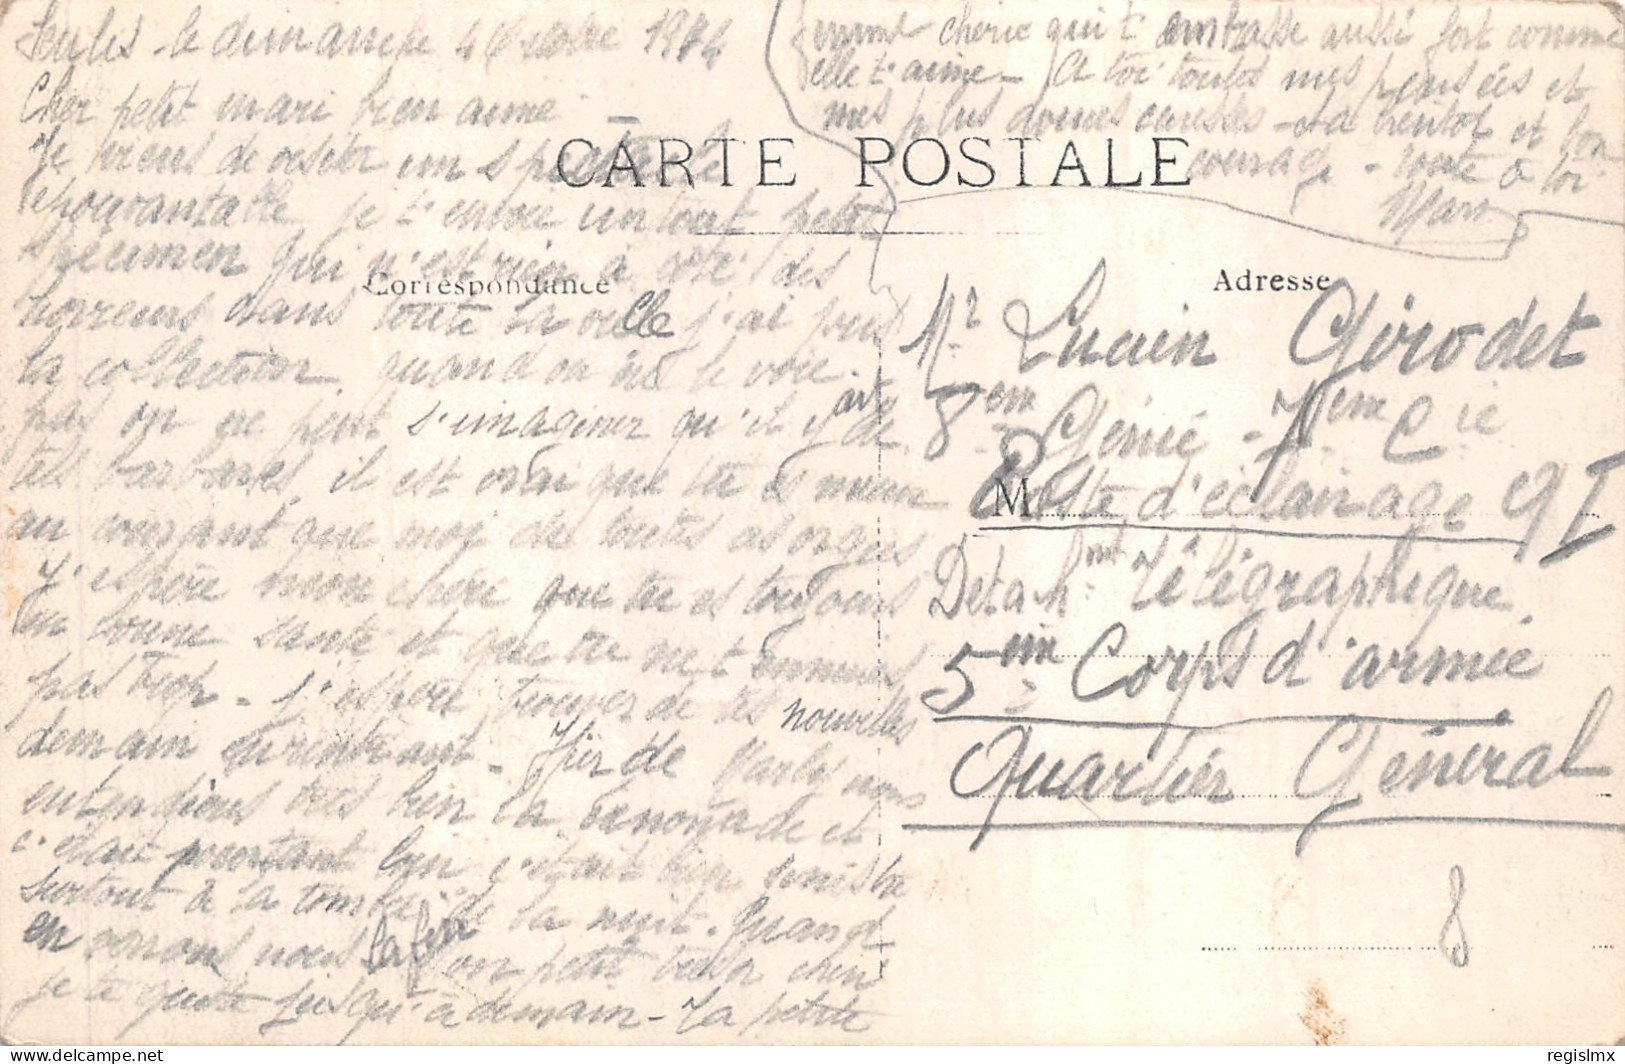 Senlis - le dimanche 4 Octobre 1914
Cher petit mari bien aimé
Je viens de visiter un spectacle
épouvantable je t'envoie un tout petit
specimen qui n'est rien à côté des
horreurs dans toute la ville j'ai pris
la collection. quand on ne le voit
pas on ne peut s'imaginer qu'il y ait de
tels barbares, il est vrai que tu es mieux
au courant que moi de toutes
J'espère mon chéri que tu es toujours
en bonne santé et que tu ne t'ennuies
pas trop - J'espère trouver de tes nouvelles
demain en rentrant - Hier de Marly nous
entendions très bien la canonnade et
c'était pourtant loin c'était bien sinistre
surtout à la tombée de la nuit. Quand
en verrons nous la fin mon petit trésor chéri
je te quitte jusqu'à demain - Ta petite
femme chérie qui t'embrasse aussi fort comme
elle t'aime - A toi toutes mes pensées et
mes plus douces caresses - à bientôt et bon
courage - toute à toi
CARTE POSTALE
Correspondance
Adresse
Mr Lucien Girodet
8em Génie - 7em Cie
M Poste d'éclairage 9I
Detachmt Télégraphique
5em Corps d'armée
Quartier Général
8
regislmx